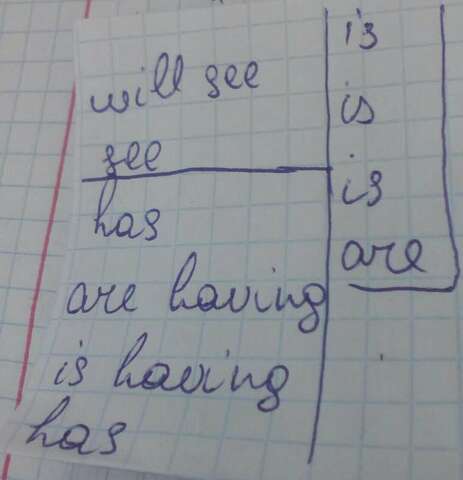 will see
see
has
are having
is having
has
is
is
is
are